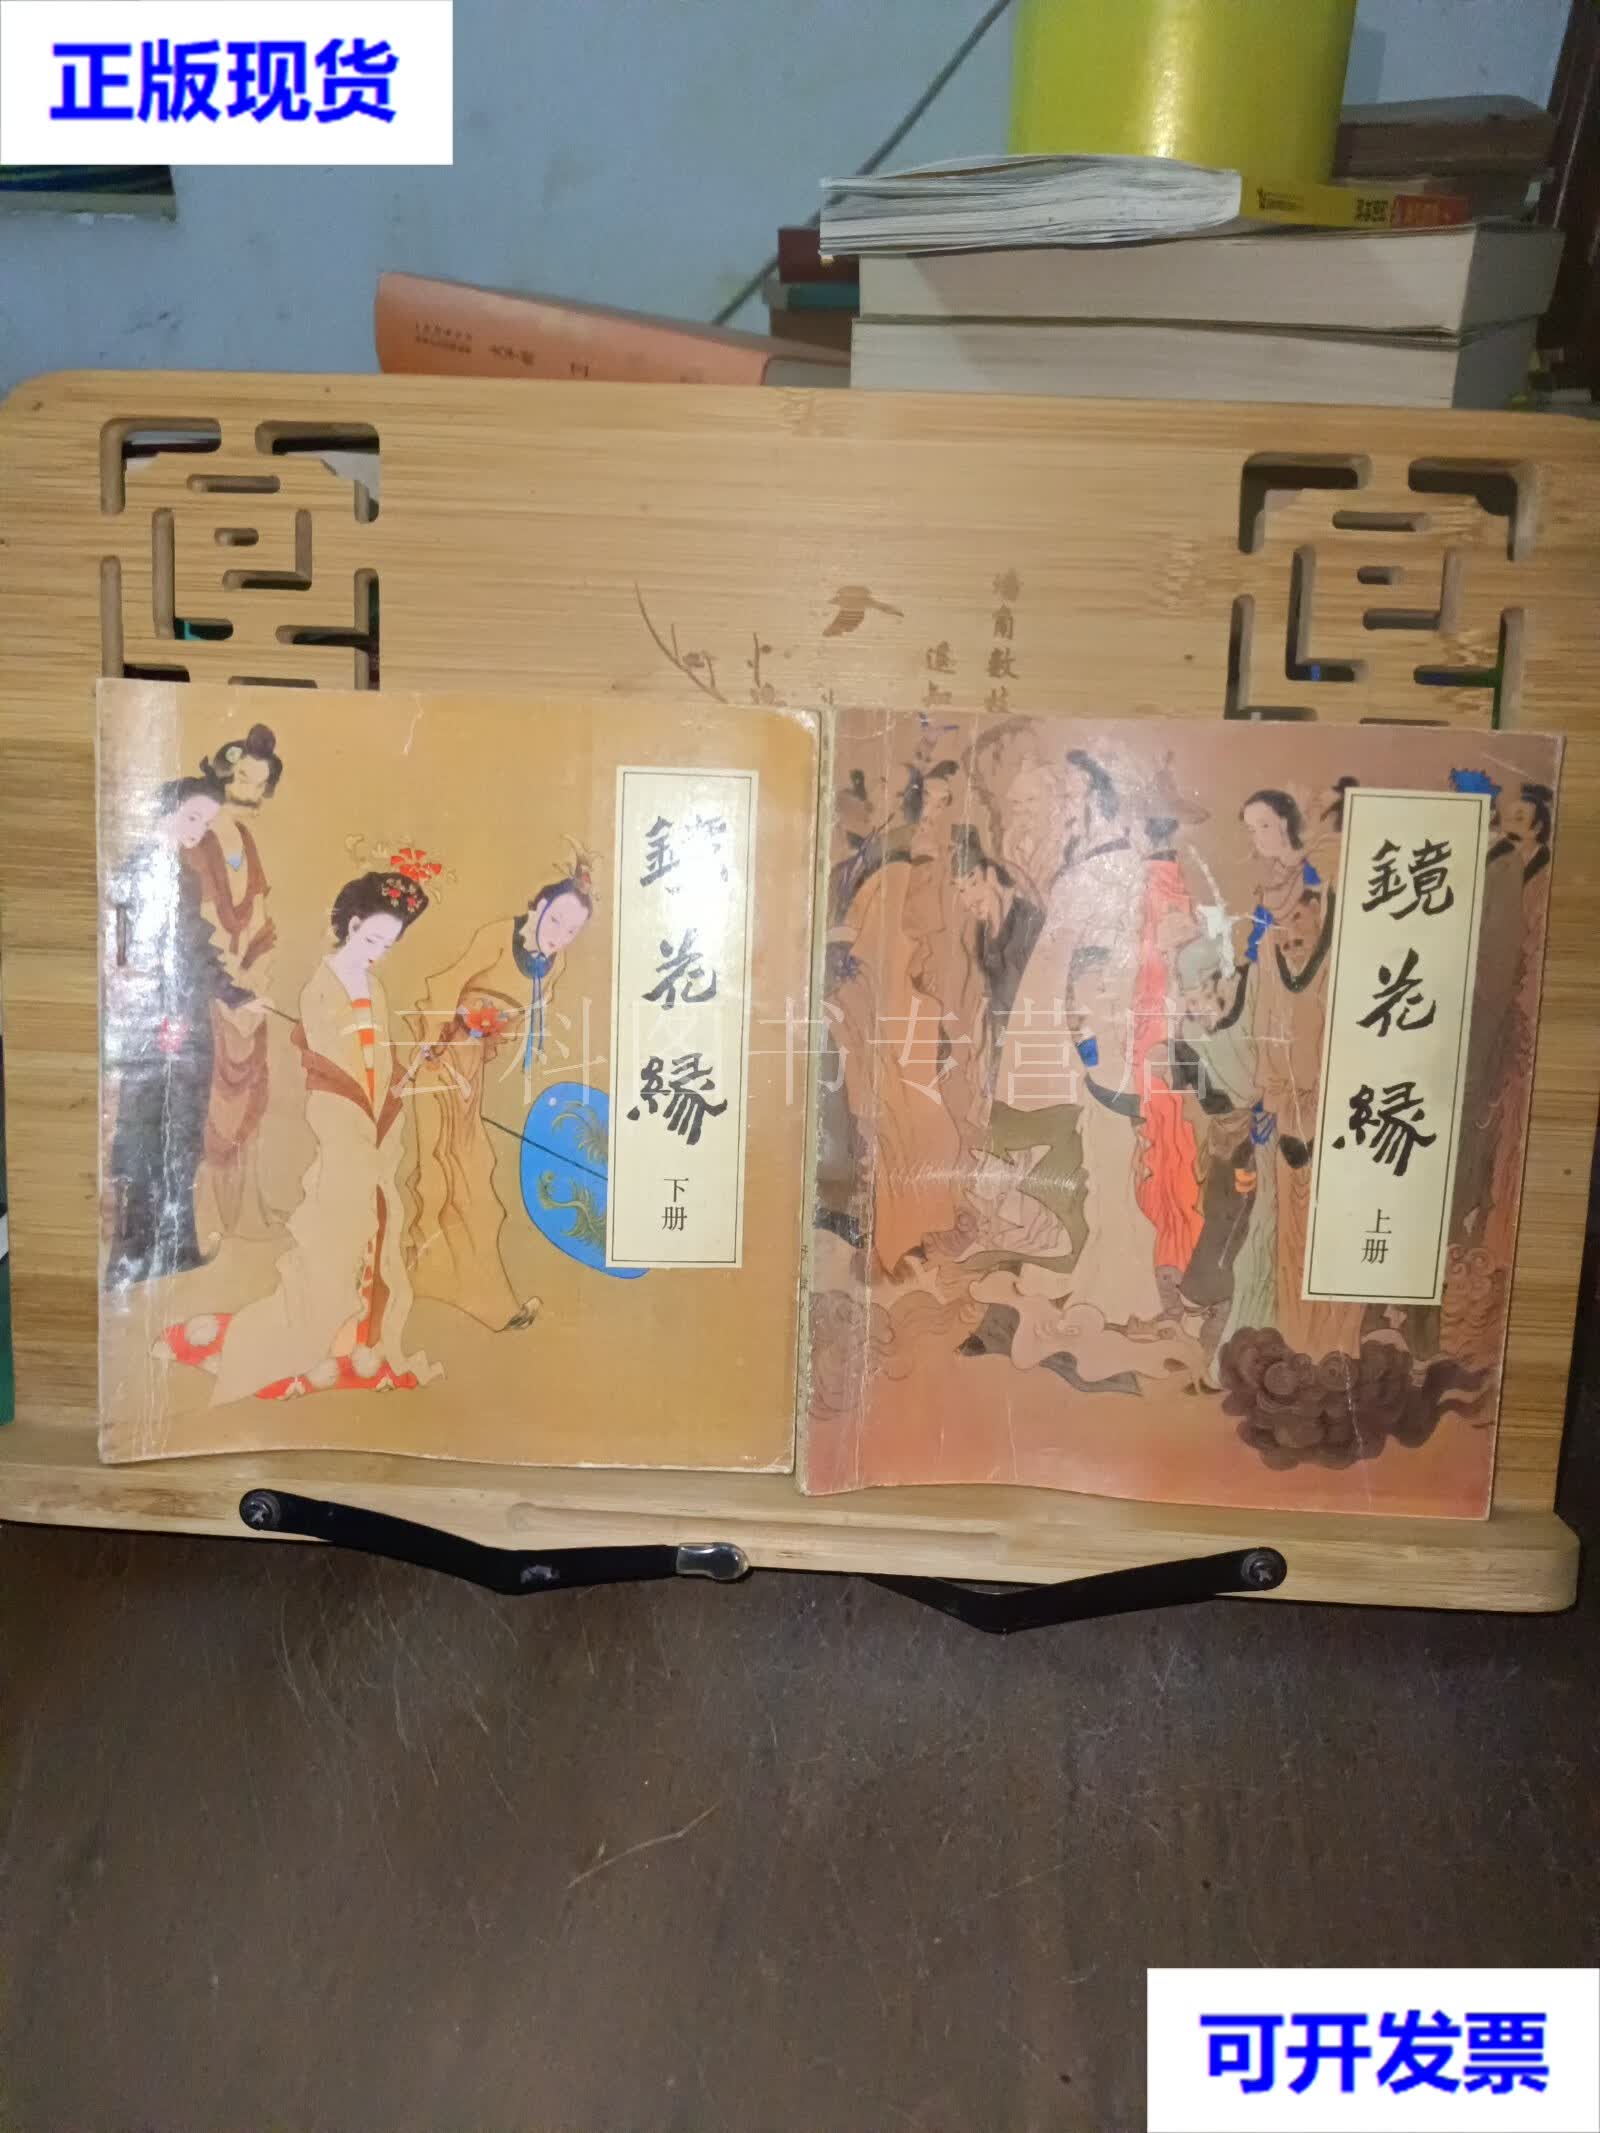 正版现货
大字版
墙角数枝
遥知
鏡花緣
下册
鏡花緣
上册
云科图书专营店
可开发票